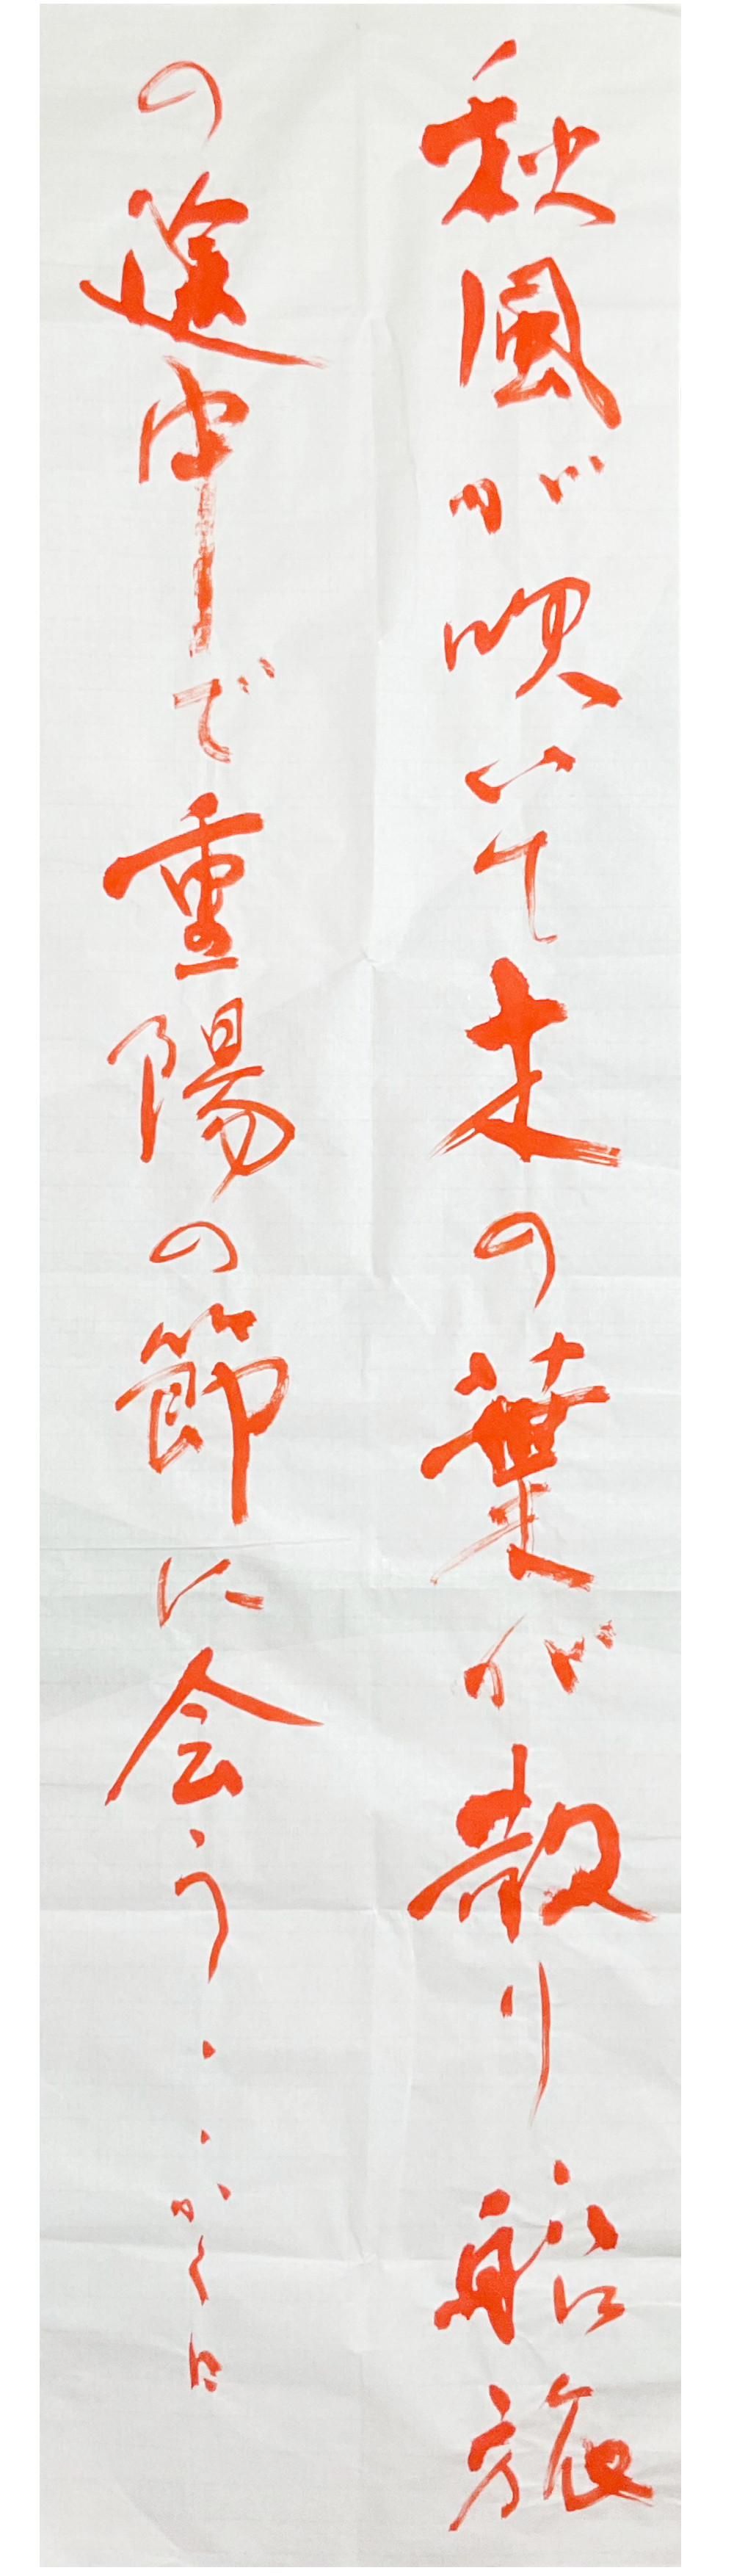 秋風が吹いて木の葉が散り船旅
の途中で重陽の節に会う・・かくに